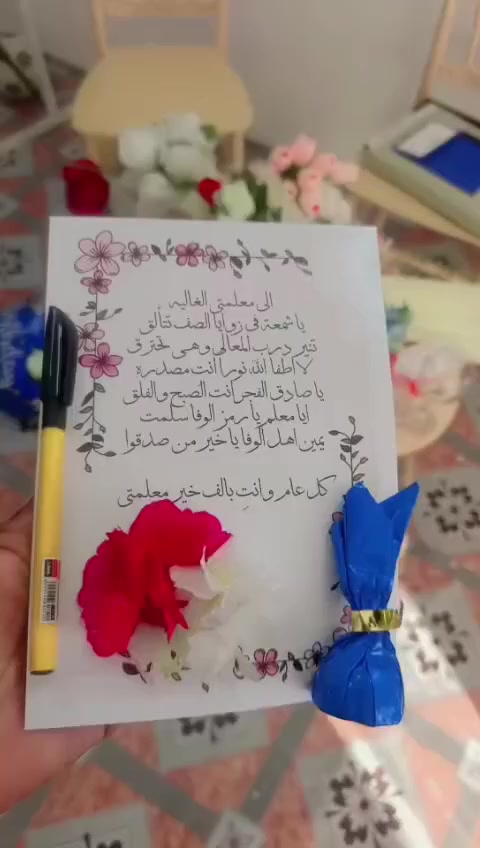 الى معلمتي الغاليه
ياشمعة في زوايا الصف تتألق
تنير درب المعالي وهي تحترق
لا اطفأ الله نورا انت مصدره
يا صادق الفجر انت الصبح والفلق
ايا معلم يا رمز الوفا سلمت
يمين اهل الوفا يا خير من صدقوا
كل عام وانتِ بالف خير معلمتي